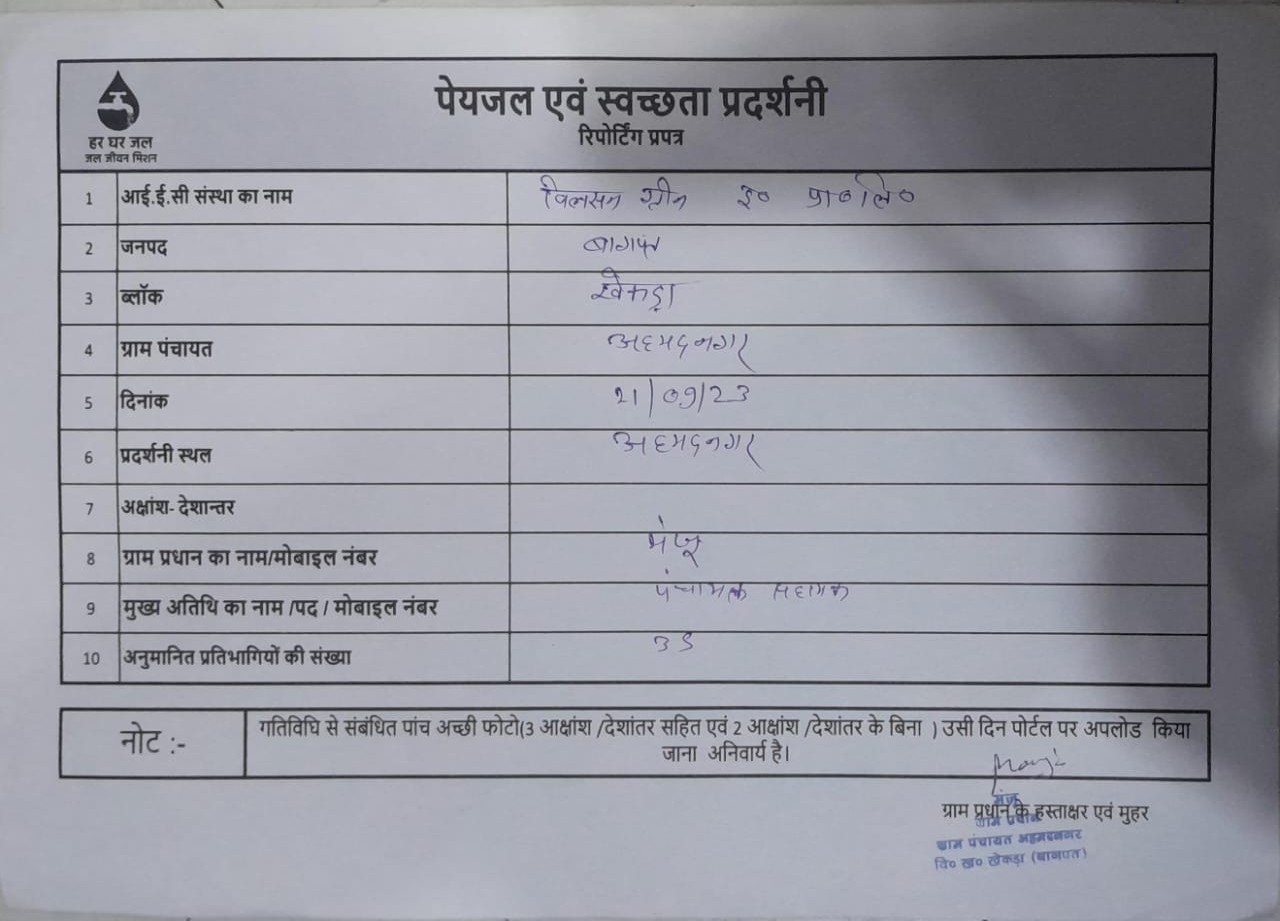 हर घर जल
जल जीवन मिशन
पेयजल एवं स्वच्छता प्रदर्शनी
रिपोर्टिंग प्रपत्र
1 आई.ई.सी संस्था का नाम विलसन ग्रीन इ० प्रा०लि०
2 जनपद बागपत
3 ब्लॉक खेकड़ा
4 ग्राम पंचायत अहमदनगर
5 दिनांक 21/09/23
6 प्रदर्शनी स्थल अहमदनगर
7 अक्षांश- देशान्तर
8 ग्राम प्रधान का नाम/मोबाइल नंबर मंजू
9 मुख्य अतिथि का नाम /पद / मोबाइल नंबर पंचायत सहायक
10 अनुमानित प्रतिभागियों की संख्या
नोट :- गतिविधि से संबंधित पांच अच्छी फोटो(3 आक्षांश /देशांतर सहित एवं 2 आक्षांश /देशांतर के बिना ) उसी दिन पोर्टल पर अपलोड किया
जाना अनिवार्य है।
मंजू
ग्राम प्रधान के हस्ताक्षर एवं मुहर
ग्राम प्रधान
ग्राम पंचायत अहमदनगर
वि० ख० खेकड़ा (बागपत)